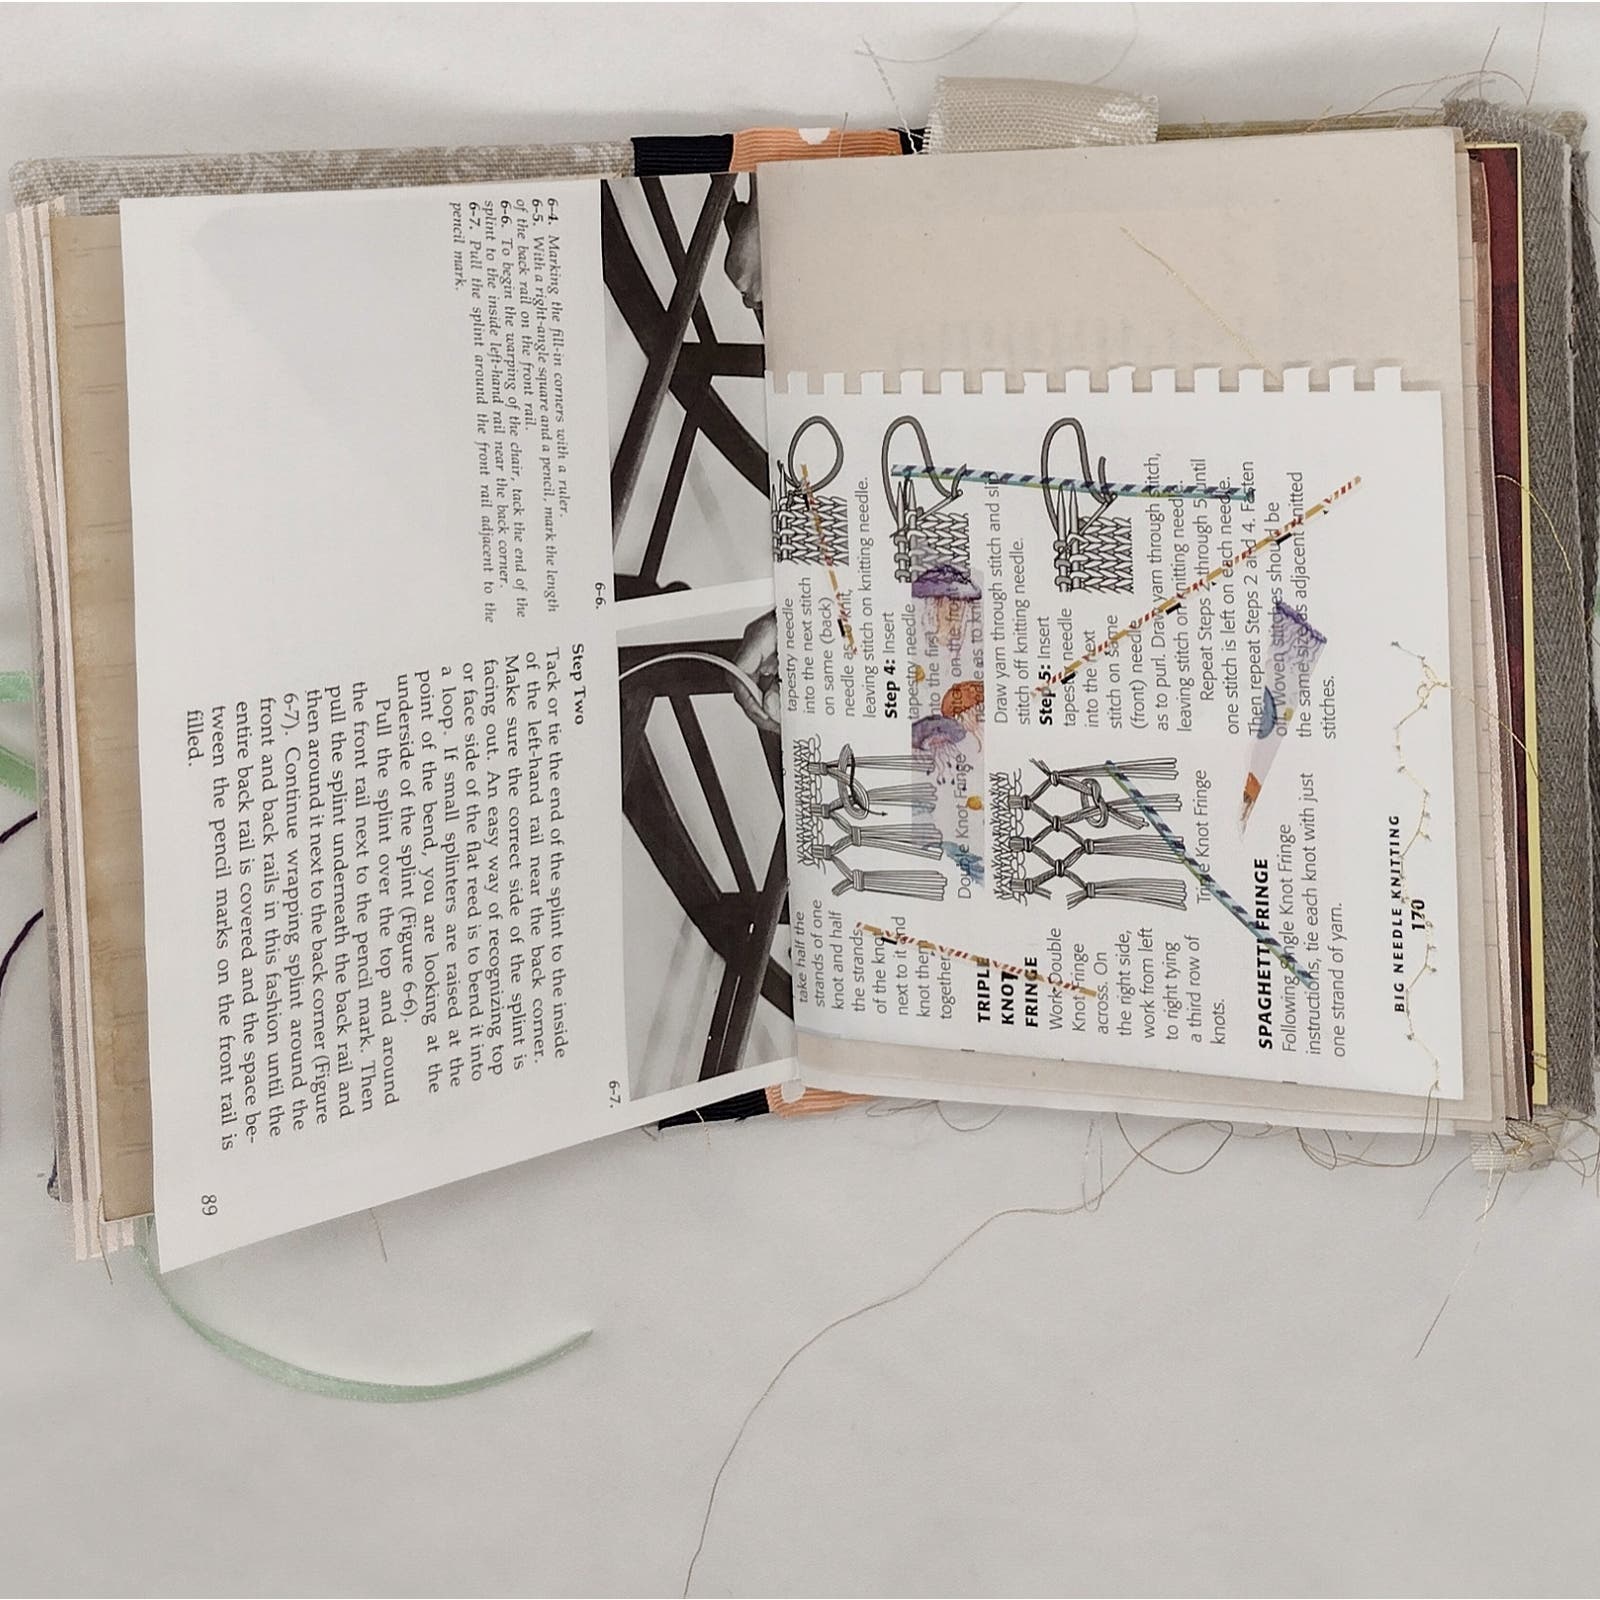 6-4. Marking the fill-in corners with a ruler.
6-5. With a right-angle square and a pencil, mark the length
of the back rail on the front rail.
6-6. To begin the warping of the chair, tack the end of the
splint to the inside left-hand rail near the back corner.
6-7. Pull the splint around the front rail adjacent to the
pencil mark.
6-6.
6-7.
Step Two
Tack or tie the end of the splint to the inside
of the left-hand rail near the back corner.
Make sure the correct side of the splint is
facing out. An easy way of recognizing top
or face side of the flat reed is to bend it into
a loop. If small splinters are raised at the
point of the bend, you are looking at the
underside of the splint (Figure 6-6).
Pull the splint over the top and around
the front rail next to the pencil mark. Then
pull the splint underneath the back rail and
then around it next to the back corner (Figure
6-7). Continue wrapping splint around the
front and back rails in this fashion until the
entire back rail is covered and the space be-
tween the pencil marks on the front rail is
filled.
89
take half the
strands of one
knot and half
the strands
of the knot
next to it and
knot them
together.
TRIPLE
KNOT
FRINGE
Work Double
Knot Fringe
across. On
the right side,
work from left
to right tying
a third row of
knots.
Double Knot Fringe
Triple Knot Fringe
SPAGHETTI FRINGE
Following Single Knot Fringe
instructions, tie each knot with just
one strand of yarn.
tapestry needle
into the next stitch
on same (back)
needle as to knit,
leaving stitch on knitting needle.
Step 4: Insert
tapestry needle
into the first
stitch on the front
needle as to knit.
Draw yarn through stitch and slip
stitch off knitting needle.
Step 5: Insert
tapestry needle
into the next
stitch on same
(front) needle
as to purl. Draw yarn through stitch,
leaving stitch on knitting needle.
Repeat Steps 2 through 5 until
one stitch is left on each needle.
Then repeat Steps 2 and 4. Fasten
off. Woven stitches should be
the same size as adjacent knitted
stitches.
BIG NEEDLE KNITTING
170